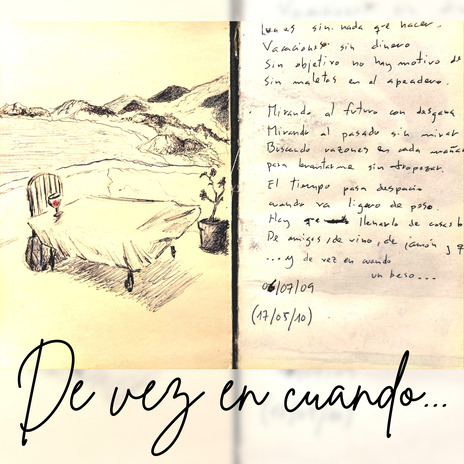 Lunes sin nada que hacer.
Vacaciones sin dinero
Sin objetivo no hay motivo de
sin maletas en el apeadero.
Mirando al futuro con desgana
Mirando al pasado sin mirar
Buscando razones en cada mañan
para levantarme sin tropezar.
El tiempo pasa despacio
cuando va ligero de peso.
Hay que llenarlo de cosas b
De amigos, de vino, de jamón y q
... y de vez en cuando
un beso...
06/07/09
(17/05/10)
De vez en cuando...